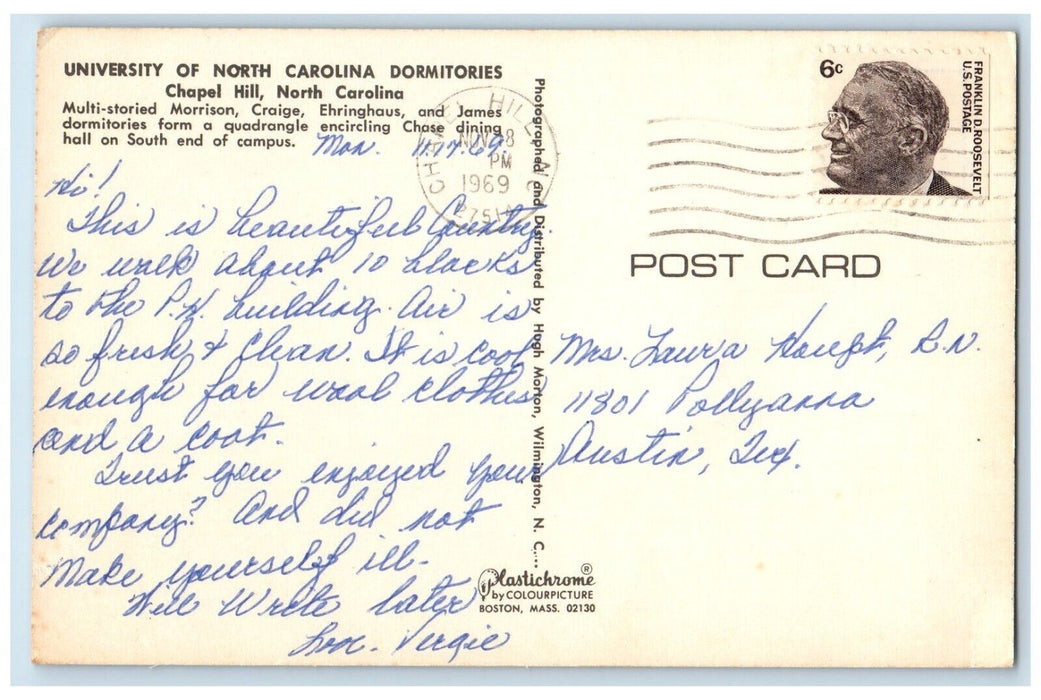 UNIVERSITY OF NORTH CAROLINA DORMITORIES
Chapel Hill, North Carolina
Multi-storied Morrison, Craige, Ehringhaus, and James
dormitories form a quadrangle encircling Chase dining
hall on South end of campus.
Mon. 11.17.69.
Hi!
This is beautiful Country.
We walk about 10 blocks
to the P.H. building. Air is
so fresh & clean. It is cool
enough for wool clothes
and a coat.
Trust you enjoyed your
company? And did not
Make yourself ill.
Will Write later
Love. Vergie
Photographed and Distributed by Hugh Morton, Wilmington, N. C....
Plastichrome ®
by COLOURPICTURE
BOSTON, MASS. 02130
CHAPEL HILL N C
NOV 18
PM
1969
27514
6c
FRANKLIN D. ROOSEVELT
U.S. POSTAGE
POST CARD
Mrs. Laura Haupt, R.N.
11801 Pollyanna
Austin, Tex.